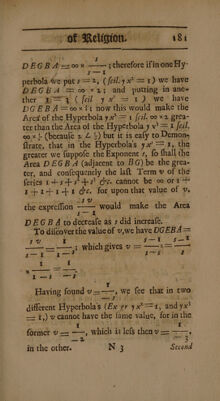 of Religion. 181
D E G B A = ∞ × s / s—1 ; therefore if in one Hy-
perbola we put s = 2, (scil. y x² = 1) we have
D E G B A = ∞ × 2 ; and putting in ano-
ther s = 3 ( scil y x³ = 1 ) we have
D G E B A = ∞ × ; now this would make the
Area of the Hyperbola y x² = 1 scil. ∞ × 2 grea-
ter than the Area of the Hyperbola y x³ = 1, scil.
∞ × (because 2 it is easy to Demon-
strate, that in the Hyperbola's y x = 1, the
greater we suppose the Exponent s, so shall the
Area D E G B A (adjacent to B G) be the grea-
ter, and consequently the last Term v of the
series 1 + s + s² + s³ &c. cannot be ∞ or 1 +
1 + 1 + 1 + 1 &c. for upon that value of v,
the expression would make the Area
D E G B A to decrease as s did increase.
To discover the value of v, we have D G E B A =
which gives v =
Having found v = , we see that in two
different Hyperbola's (Ex gr y x² = 1, and y x³
= 1,) v cannot have the same value, for in the
former v = , which is less then v =
in the other. N 3 Second